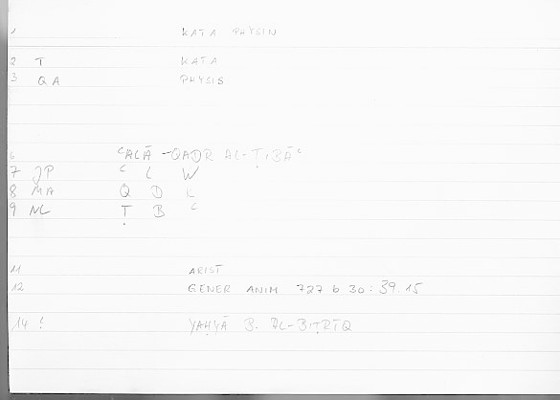 1 KATA PHYSIN
2 T KATA
3 QA PHYSIS
6 ʿALĀ -QADR AL-ṬIBĀʿ
7 JP ʿ L W
8 MA Q D R
9 NL Ṭ B ʿ
11 ARIST
12 GENER ANIM 727 b 30 : 39.15
14 ! YAḤYĀ B. AL-BIṬRĪQ